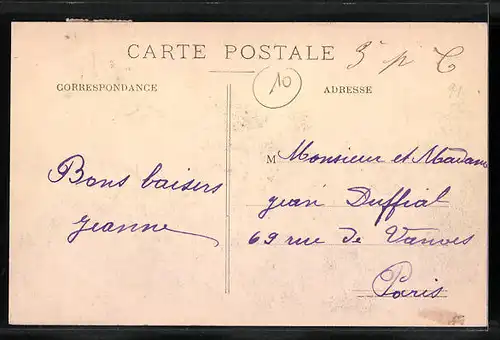 CARTE POSTALE
3 p C
10
CORRESPONDANCE
ADRESSE
Bons baisers
Jeanne
M Monsieur et Madame
Jean Duffial
69 rue de Vanves
Paris